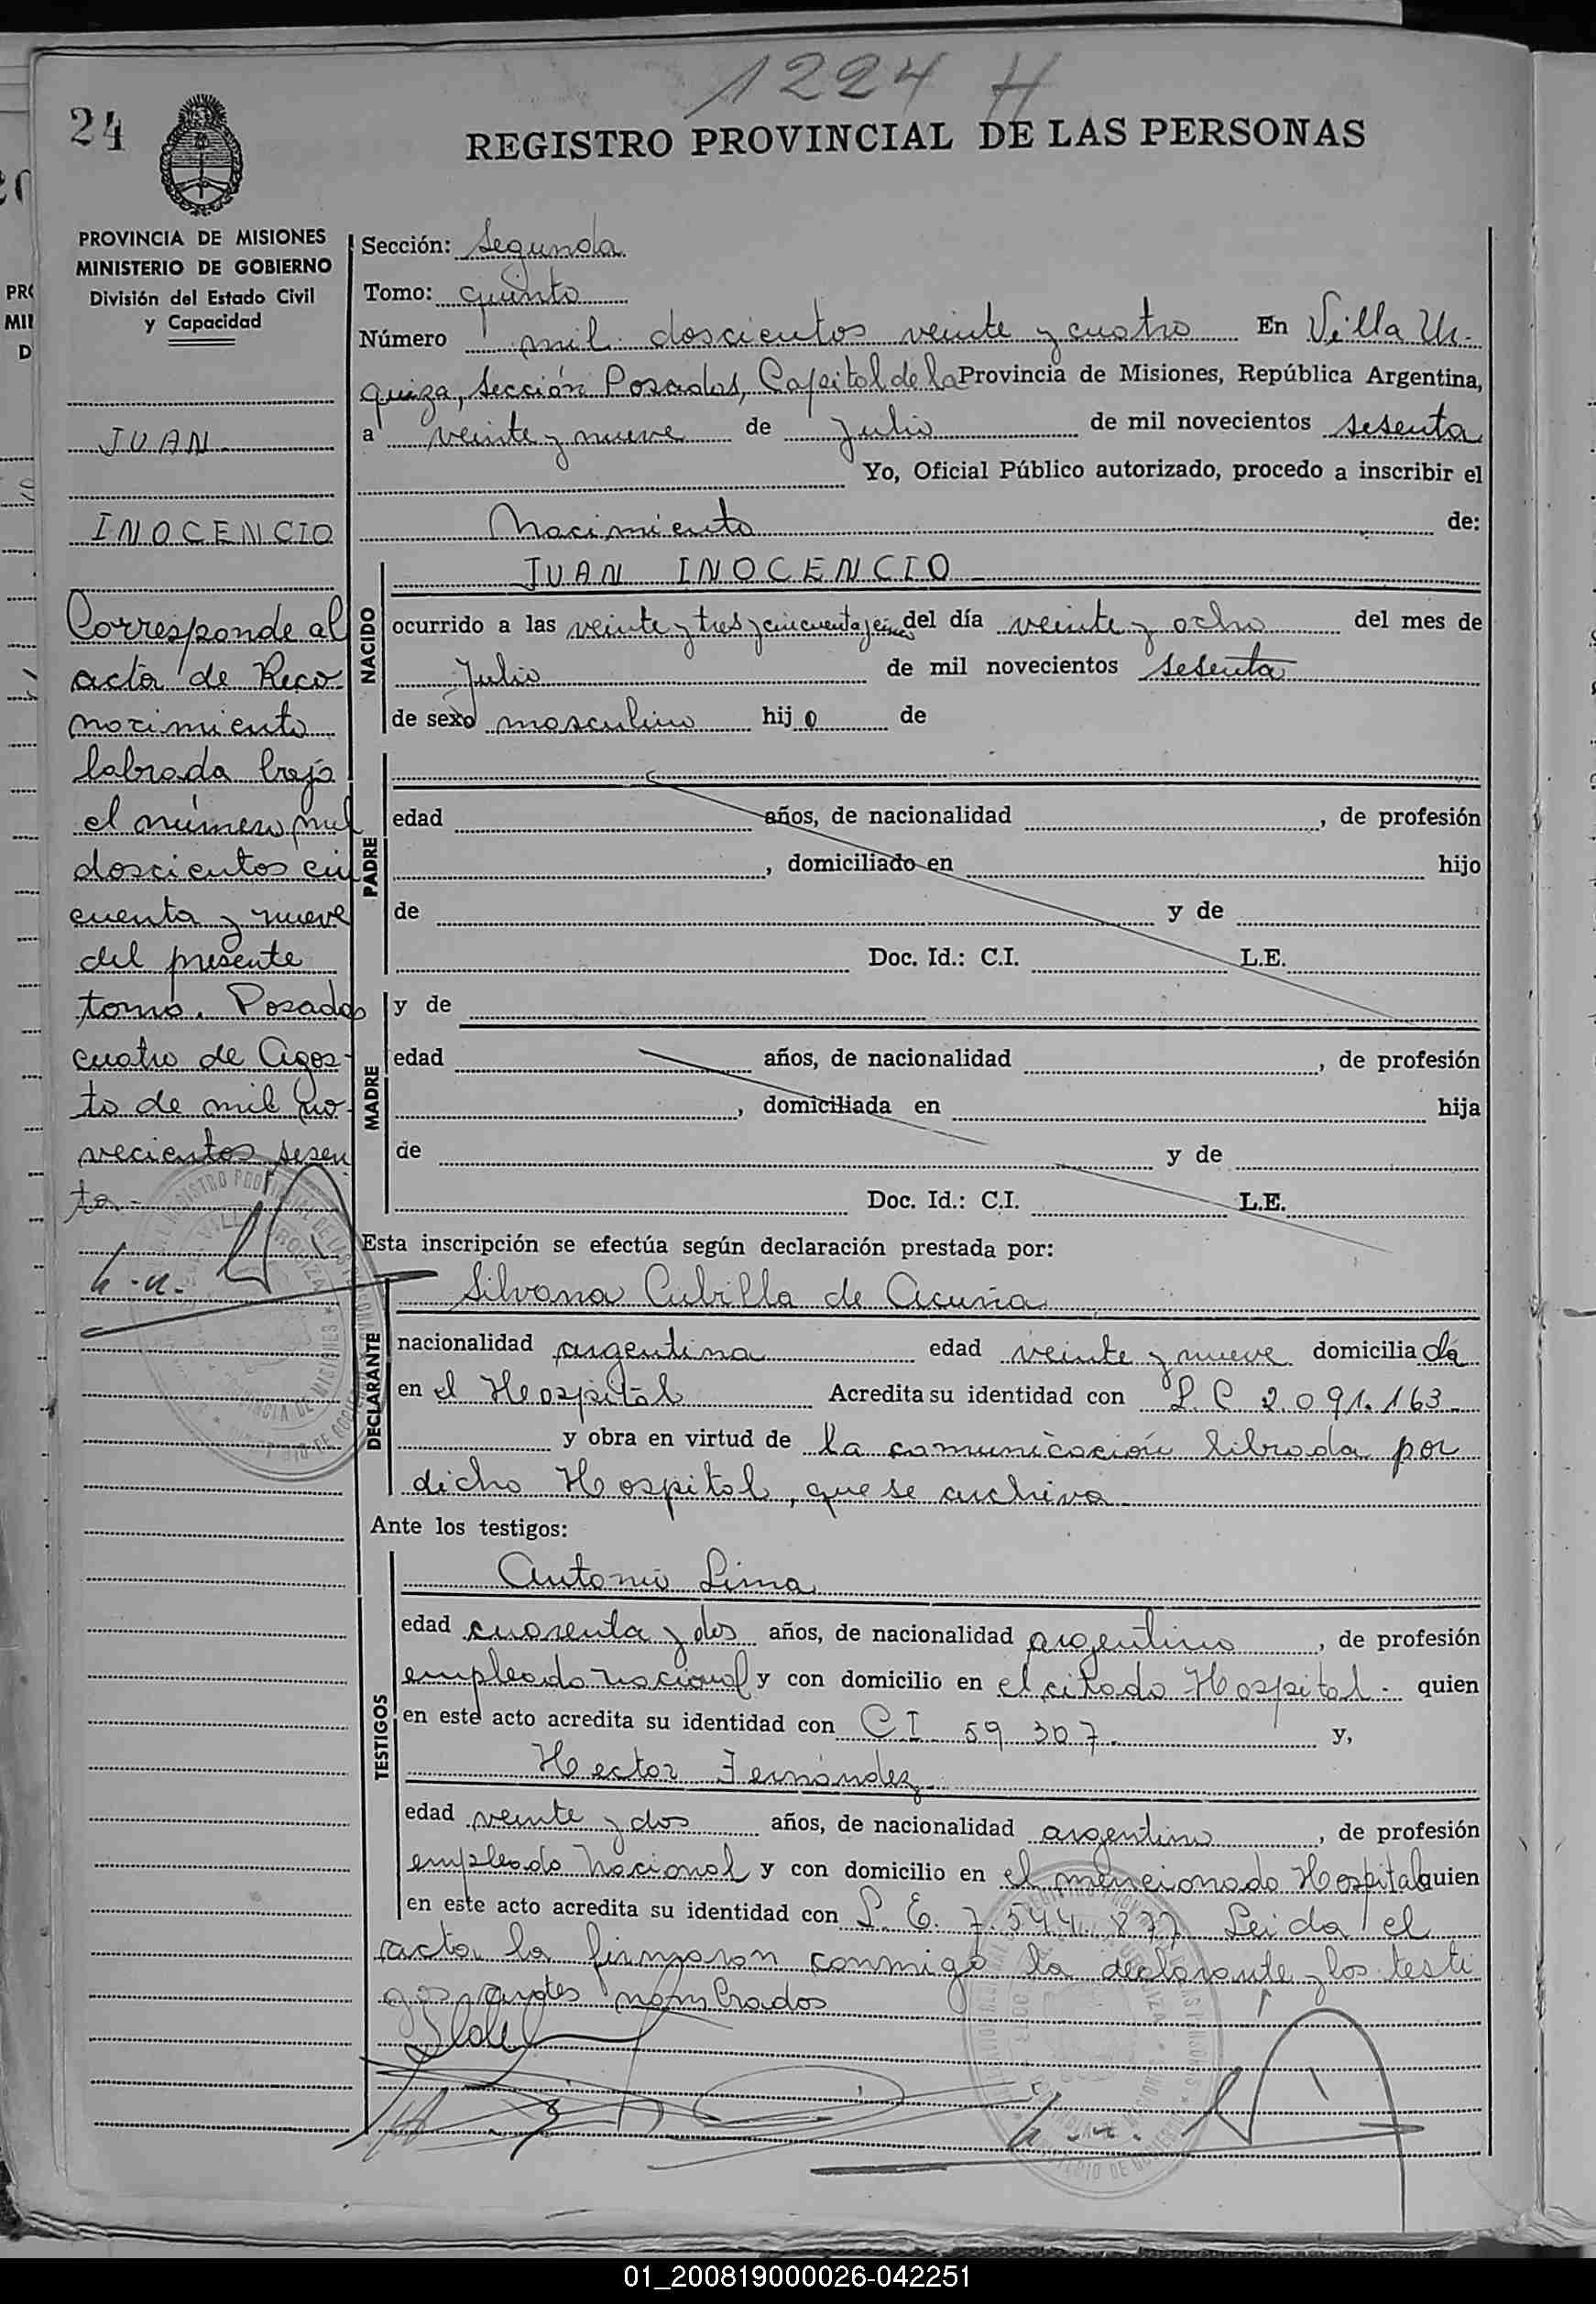 1224 H
24
REGISTRO PROVINCIAL DE LAS PERSONAS
PROVINCIA DE MISIONES
MINISTERIO DE GOBIERNO
División del Estado Civil
y Capacidad
JUAN
INOCENCIO
Corresponde al
acta de Reco
nocimiento
labrada bajo
el número mil
doscientos cin
cuenta y nueve
del presente
tomo. Posadas
cuatro de Agos-
to de mil no-
vecientos sesen
ta-
Sección: Segunda
Tomo: quinto
Número mil doscientos veinte y cuatro En Villa Ur-
quiza, Sección Posadas, Capital de la Provincia de Misiones, República Argentina,
a veinte y nueve de Julio de mil novecientos sesenta
Yo, Oficial Público autorizado, procedo a inscribir el
Nacimiento de:
NACIDO
JUAN INOCENCIO
ocurrido a las veinte y tres y cincuenta y cinco del día veinte y ocho del mes de
Julio de mil novecientos sesenta
de sexo masculino hijo de
PADRE
edad años, de nacionalidad , de profesión
, domiciliado en hijo
de y de
Doc. Id.: C.I. L.E.
MADRE
y de
edad años, de nacionalidad , de profesión
, domiciliada en hija
de y de
Doc. Id.: C.I. L.E.
Esta inscripción se efectúa según declaración prestada por:
DECLARANTE
Silvana Cubilla de Acuña
nacionalidad argentina edad veinte y nueve domiciliada
en el Hospital Acredita su identidad con L C 2.091.163-
y obra en virtud de la comunicación librada por
dicho Hospital, que se archiva
Ante los testigos:
TESTIGOS
Antonio Lima
edad cuarenta y dos años, de nacionalidad argentino, de profesión
empleado nacional y con domicilio en el citado Hospital- quien
en este acto acredita su identidad con C I 59 307. y,
Hector Fernández
edad veinte y dos años, de nacionalidad argentino, de profesión
empleado nacional y con domicilio en el mencionado Hospital quien
en este acto acredita su identidad con L. E. 7.544.877 Leida el
acta la firmaron conmigo la declarante y los testi
gos antes nombrados
01_200819000026-042251